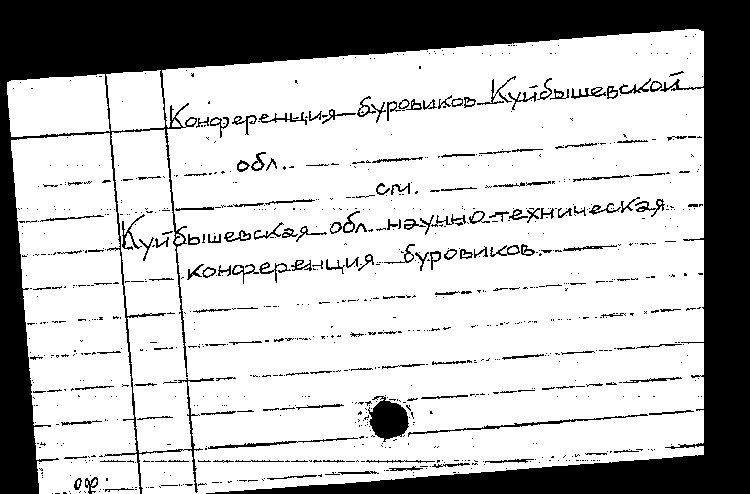 Конференция буровиков Куйбышевской
обл.
см.
Куйбышевская обл. научно-техническая
конференция буровиков.